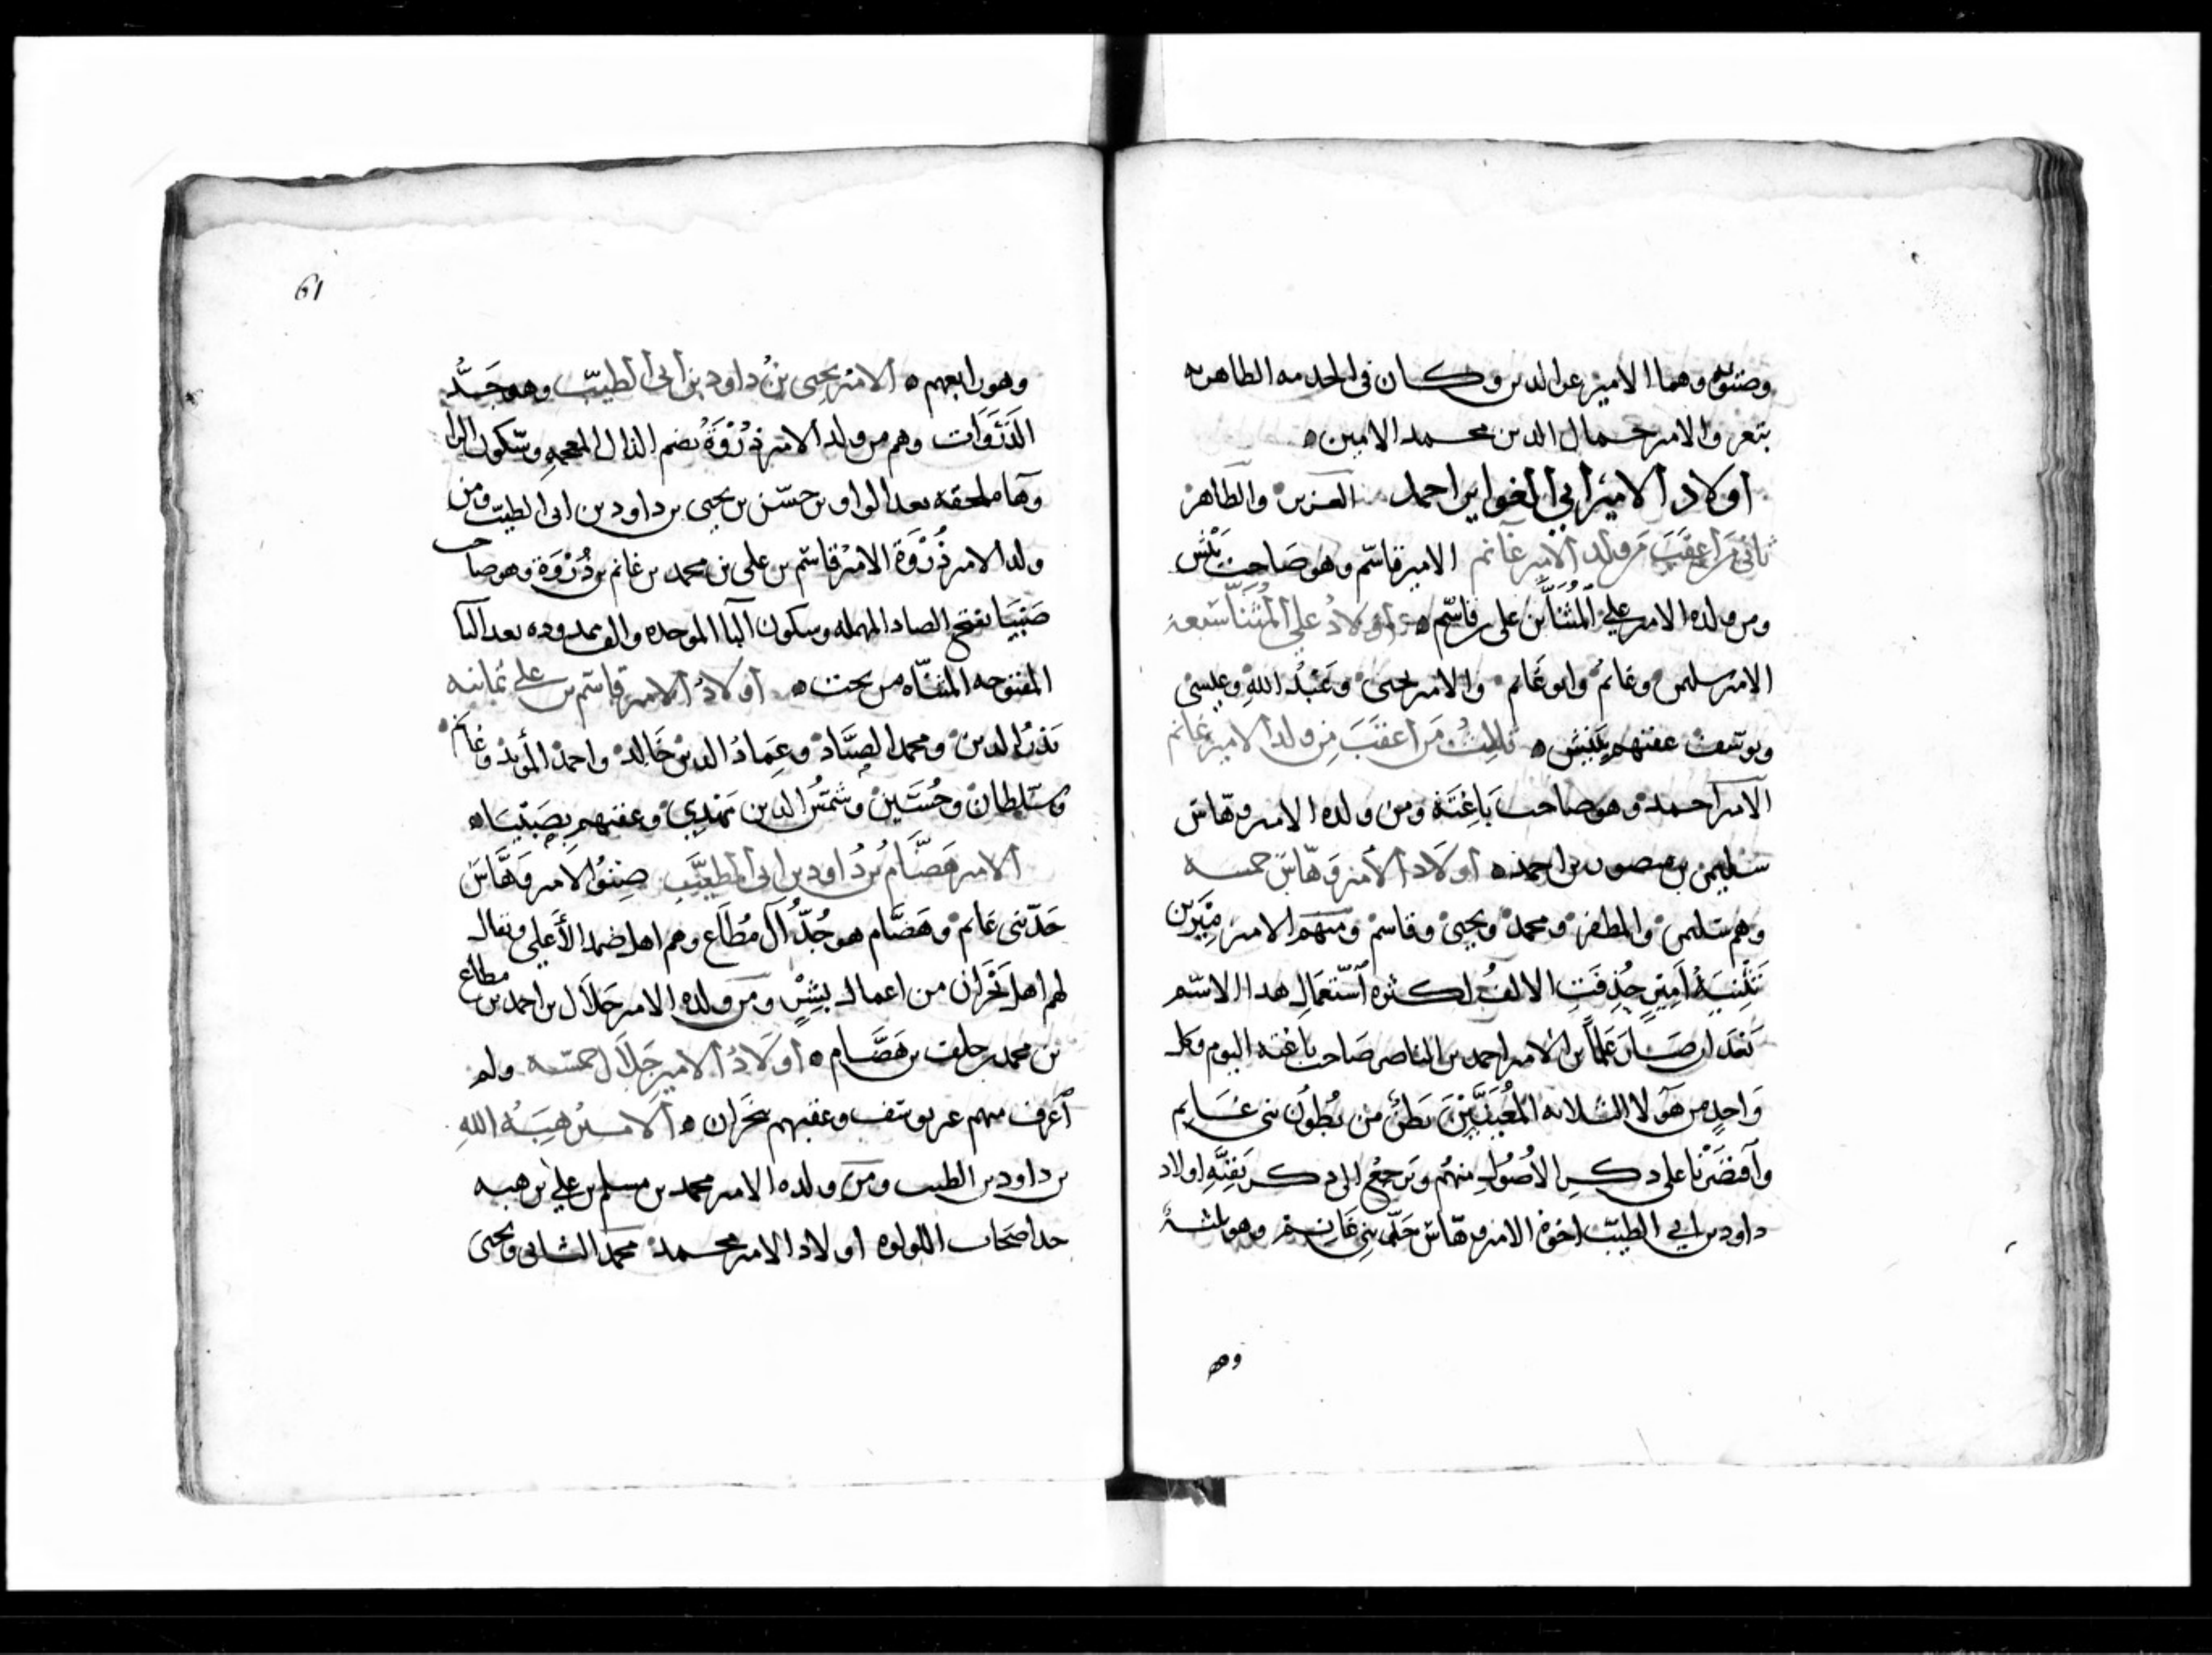 وصنوه وهما الامير عز الدين وكان في الخدمه الطاهريه
بتعز والامير جمال الدين محمد الامين ه
اولاد الامير ابي الغواير احمد العزيز والطاهر
ثاني من اعقب من ولد الامير غانم الامير قاسم وهو صاحب بيش
ومن ولده الامير علي المثنا بن علي بن قاسم ه اولاد علي المثنا سبعة
الامير سليمن وغانم وابو غانم والامير يحيى وعبد الله وعيسى
ويوسف عقبهم ببيش ه ثالث من اعقب من ولد الامير غانم
الامير احمد وهو صاحب باغتة ومن ولده الامير وهاس
سليمن بن منصور بن احمد ه اولاد الامير وهاس خمسه
وهم سليمن والمظفر ومحمد ويحيى وقاسم ومنهم الامير ميرين
تثنية امير حذفت الالف لكثرة استعمال هذا الاسم
بعد ان صار علما بن الامير احمد بن الناصر صاحب باغته اليوم وكل
واحد من هولا الثلاثه المعقبين بطن من بطون بني غانم
واقتصرنا على ذكر الاصول منهم ونرجع الى ذكر بقية اولاد
داود بن ابي الطيب اخوة الامير وهاس جد بني غانم وهو ثلثة
وهو
61
وهو رابعهم ه الامير يحيى بن داود بن ابي الطيب وهو جد
الذروات وهم من ولد الامير ذروة بضم الذال المعجمه وسكون الرا
وها ملحقه بعد الواو بن حسن بن يحيى بن داود بن ابي الطيب ومن
ولد الامير ذروة الامير قاسم بن علي بن محمد بن غانم بن ذروة وهو صاحب
صبيا بفتح الصاد المهمله وسكون البا الموحده والف ممدوده بعد اليا
المفتوحه المثناه من تحت ه اولاد الامير قاسم بن علي ثمانيه
بدر الدين ومحمد الصياد وعماد الدين خالد واحمد المؤيد وغانم
وسلطان وحسين وشمس الدين مهدي وعقبهم بصبيا ه
الامير هضام بن داود بن ابي الطيب صنو الامير وهاس
جد بني غانم وهضام هو جد آل مطاع وهم اهل ضمد الأعلى ويقال
لهم اهل نخران من اعمال بيش ومن ولده الامير جلال بن احمد بن مطاع
بن محمد بن خلف بن هضام ه اولاد الامير جلال خمسه ولم
اعرف منهم غير يوسف وعقبهم بنخران ه الامير هبة الله
بن داود بن الطيب ومن ولده الامير محمد بن مسلم بن علي بن هبه
جد اصحاب اللولوه اولاد الامير محمد محمد الثاني ويحيى